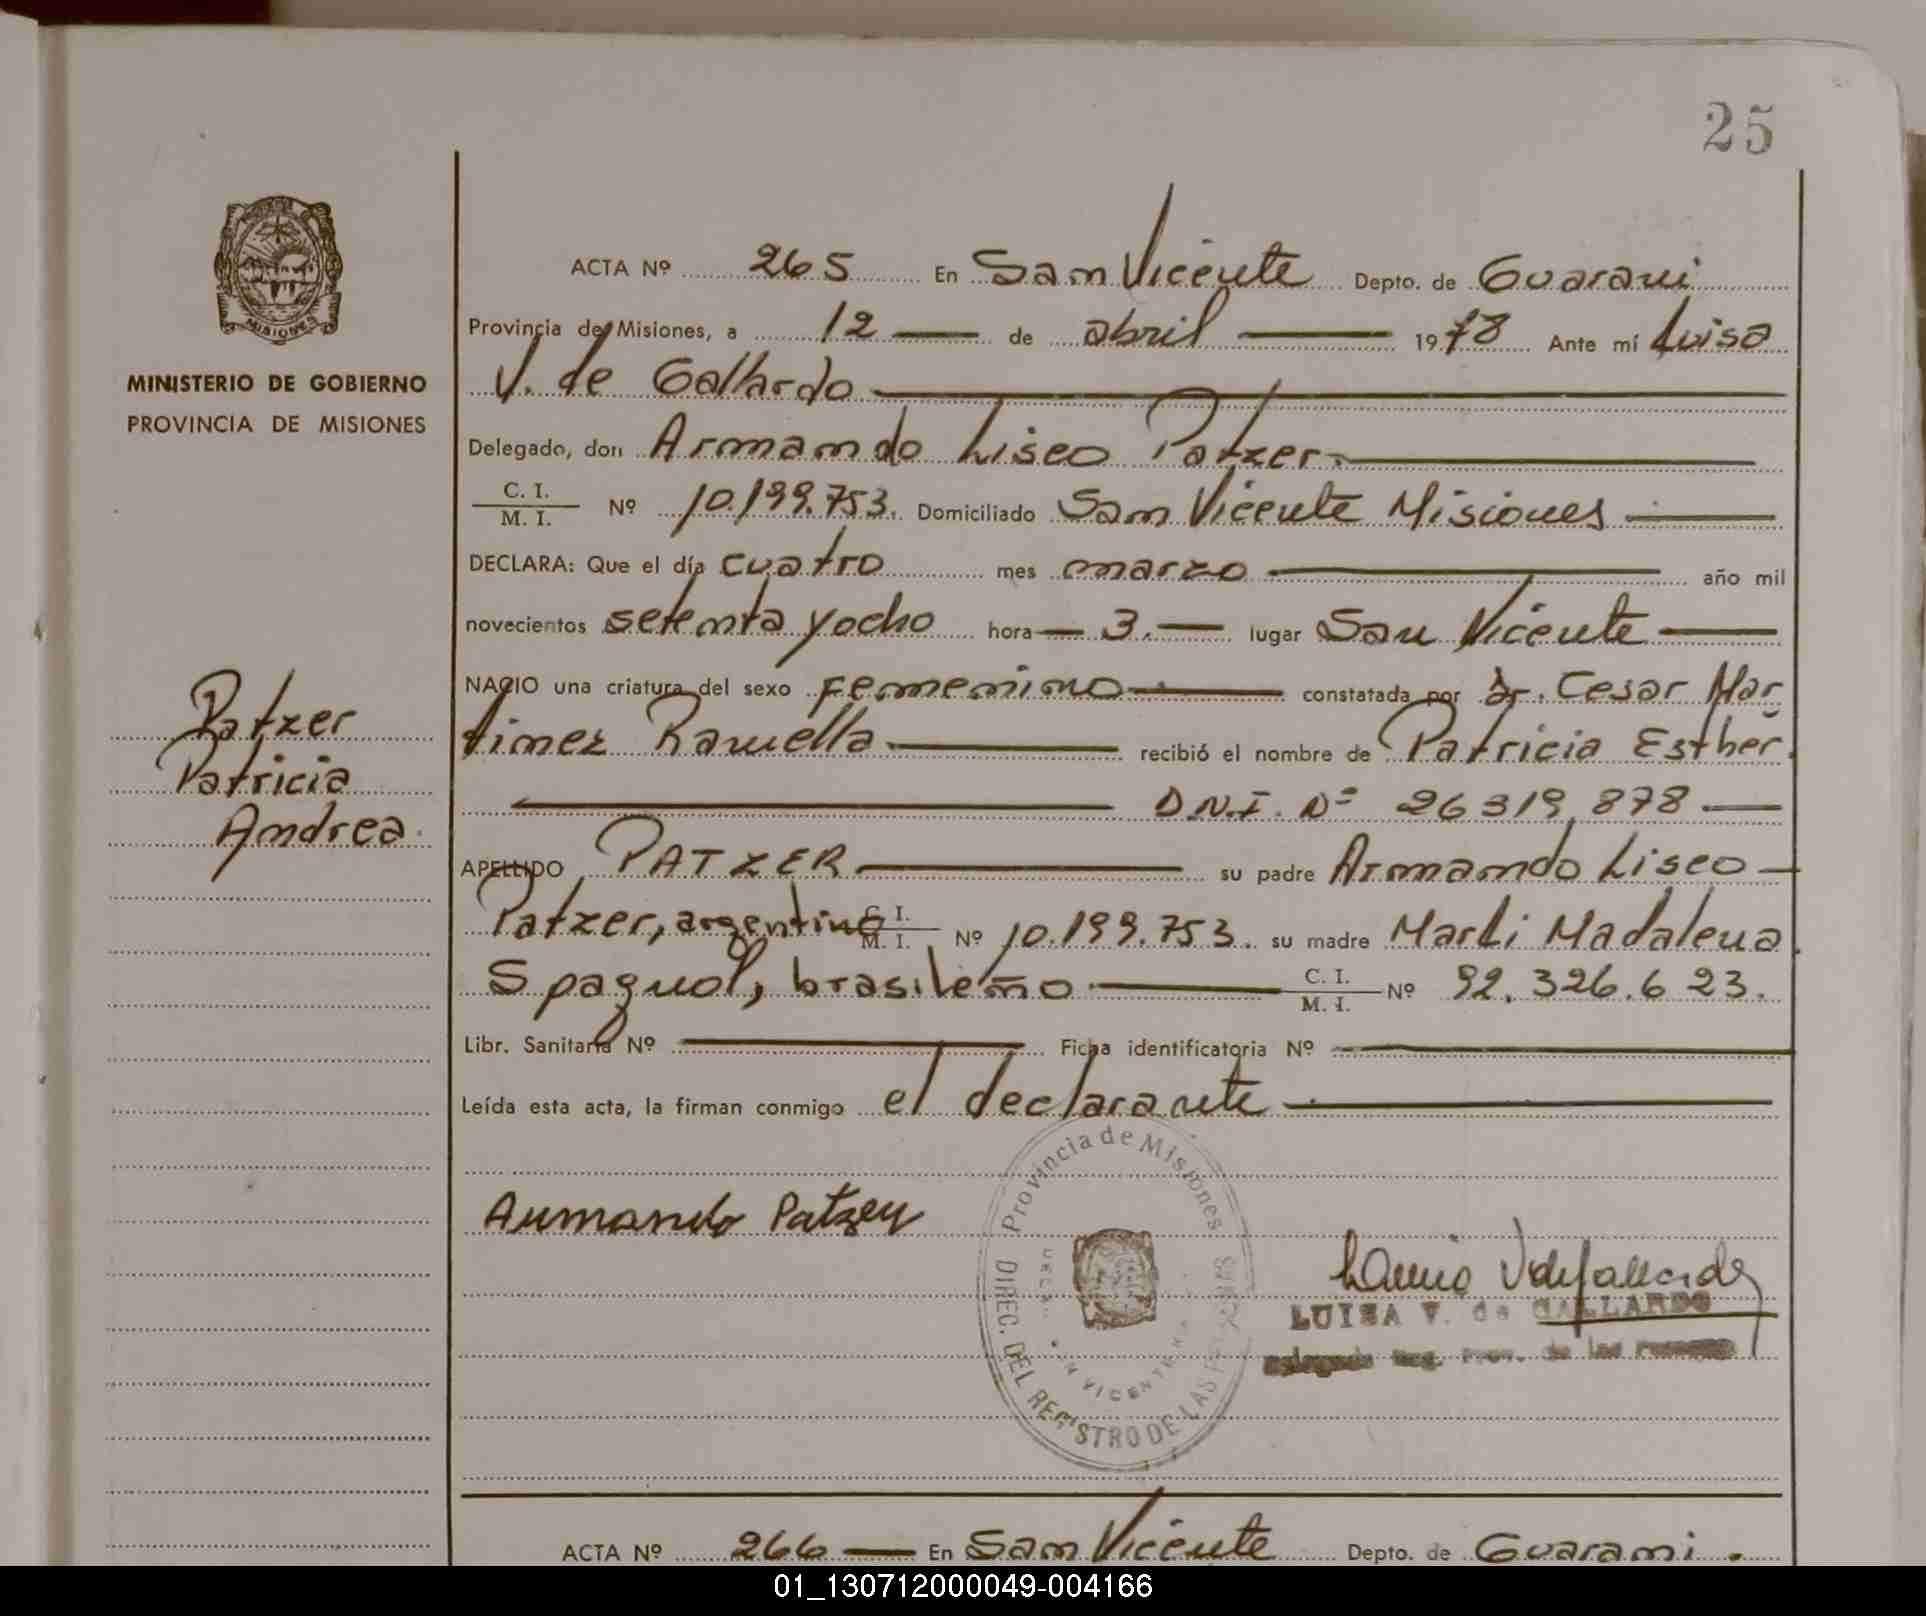 25
MISIONES
MINISTERIO DE GOBIERNO
PROVINCIA DE MISIONES
Patzer
Patricia
Andrea.
ACTA Nº 265 En San Vicente Depto. de Guarani
Provincia de Misiones, a 12 de abril 1978 Ante mí Luisa
V. de Gallardo
Delegado, don Armando Liseo Patzer
C. I.
M. I. Nº 10.199.753. Domiciliado San Vicente Misiones
DECLARA: Que el día cuatro mes marzo año mil
novecientos setenta y ocho hora 3. lugar San Vicente
NACIO una criatura del sexo femenino constatada por Dr. Cesar Mar
tinez Ramella recibió el nombre de Patricia Esther.
D.N.I. Nº 26319.878
APELLIDO PATZER su padre Armando Liseo
Patzer, argentino C. I.
M. I. Nº 10.199.753. su madre Marli Madalena
Spagnol, brasileño C. I.
M. I. Nº 92.326.623.
Libr. Sanitaria Nº Ficha identificatoria Nº
Leída esta acta, la firman conmigo el declarante
Provincia de Misiones
DIREC. DEL REGISTRO DE LAS
VICENTE
Armando Patzer
LUISA V. de GALLARDO
ACTA Nº 266 En San Vicente Depto. de Guarani.
01_130712000049-004166